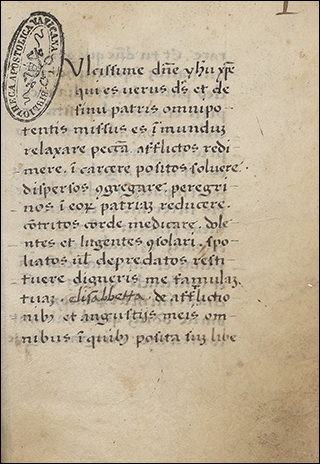 BIBLIOTHECA APOSTOLICA VATICANA
1
Dulcissime dñe yhu xp̃e
qui es uerus ds̃ et de
sinu patris omnipo
tentis missus es ĩ mundũ
relaxare pecc̃a afflictos redi
mere. ĩ carcere positos soluere
dispersos ꝯgregare. peregri
nos ĩ eoꝝ patriaꝫ reducere.
cõtritos corde medicare. dole
ntes et lugentes ꝯsolari. spo
liatos ul̃ depredatos resti
tuere digneris me famulaꝫ
tuaꝫ. elisabbetta. de afflictio
nibꝫ et angustijs meis om
nibus ĩ quibꝫ posita suꝫ libe